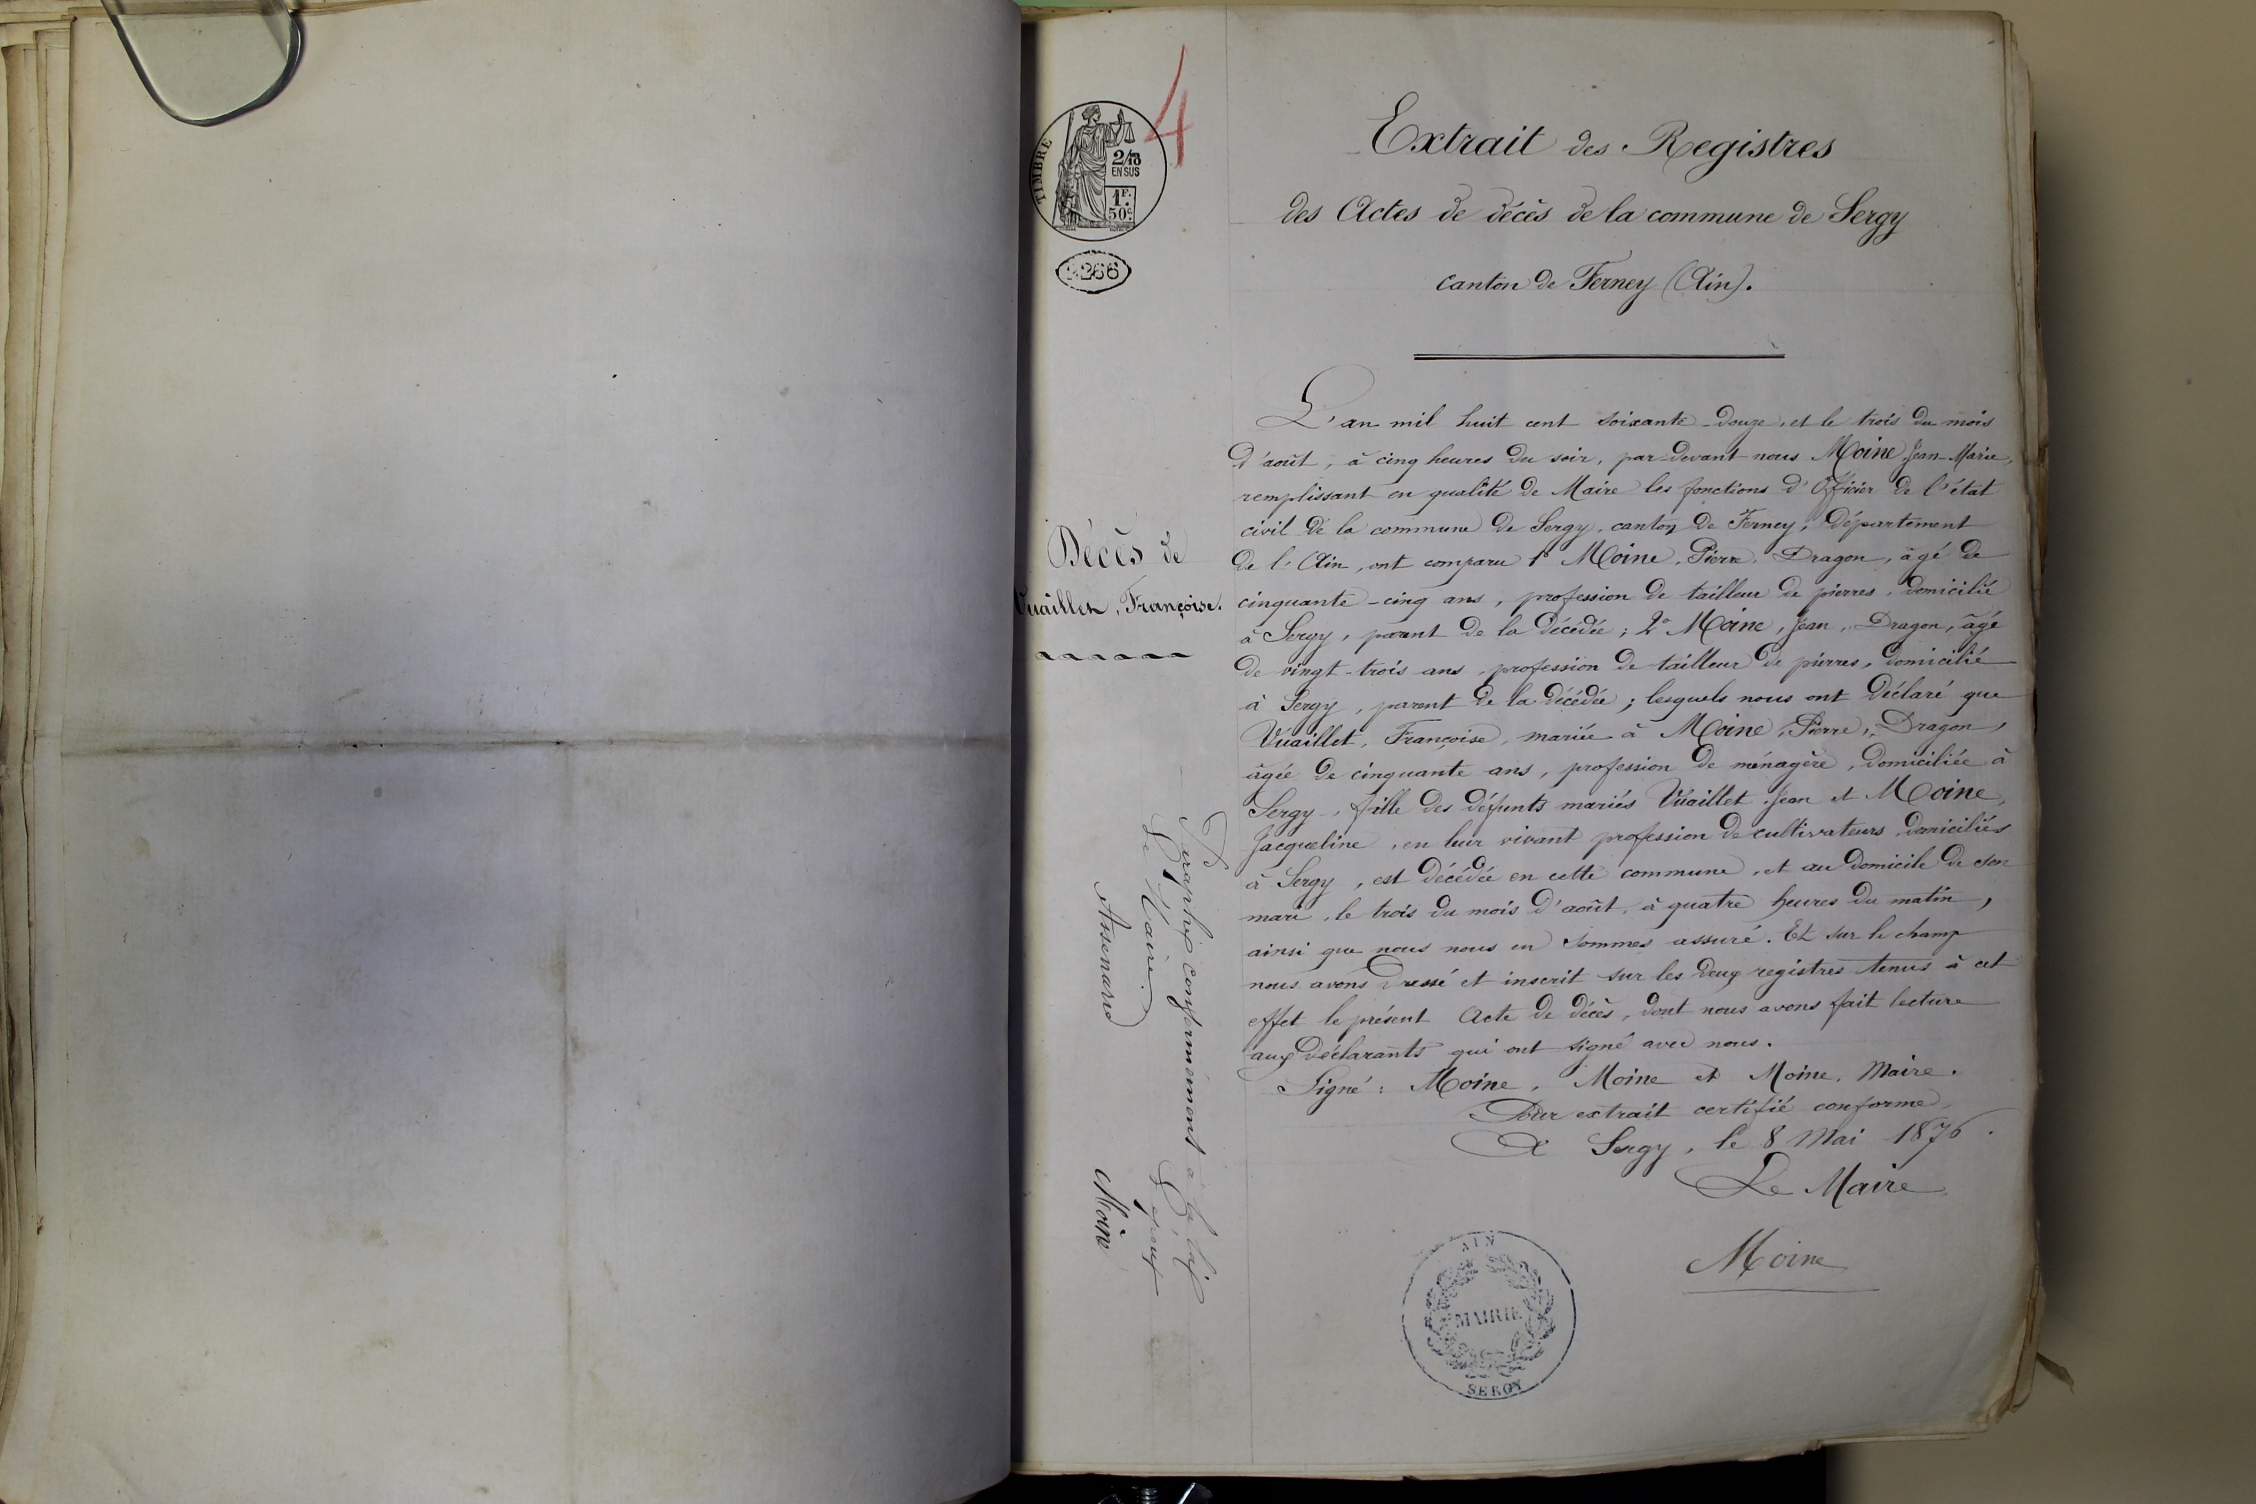 4
TIMBRE
2/10
EN SUS
1F.
50c
266
Extrait des Registres
des Actes de décès de la commune de Sergy
canton de Ferney (Ain).
Décès de
Vuaillet, Françoise.
L'an mil huit cent soixante-douze, et le trois du mois
d'août, à cinq heures du soir, par-devant nous Moine Jean-Marie,
remplissant en qualité de Maire les fonctions d'Officier de l'état
civil de la commune de Sergy, canton de Ferney, Département
de l'Ain, ont comparu 1° Moine, Pierre, Dragon, âgé de
cinquante-cinq ans, profession de tailleur de pierres, domicilié
à Sergy, parent de la décédée; 2° Moine, Jean, Dragon, âgé
de vingt-trois ans, profession de tailleur de pierres, domicilié
à Sergy, parent de la décédée; lesquels nous ont déclaré que
Vuaillet, Françoise, mariée à Moine, Pierre, Dragon,
âgée de cinquante ans, profession de ménagère, domiciliée à
Sergy, fille des défunts mariés Vuaillet, Jean et Moine,
Jacqueline, en leur vivant profession de cultivateurs, domiciliés
à Sergy, est décédée en cette commune, et au domicile de son
mari, le trois du mois d'août, à quatre heures du matin,
ainsi que nous nous en sommes assuré. Et sur le champ
nous avons dressé et inscrit sur les deux registres tenus à cet
effet le présent Acte de décès, dont nous avons fait lecture
aux déclarants qui ont signé avec nous.
Signé: Moine, Moine et Moine, Maire.
Pour extrait certifié conforme
A Sergy, le 8 Mai 1876.
Le Maire
Moine
AIN
MAIRIE
SERGY
Paraphé conformément à la loi
Le Maire L'époux
Moine